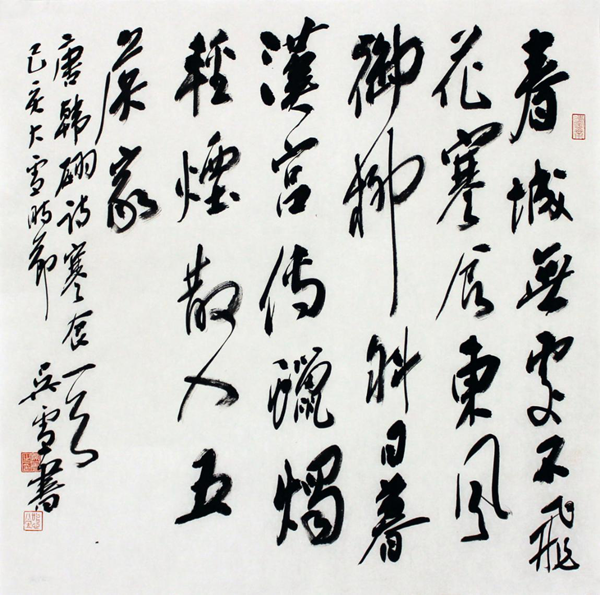 春城無處不飛
花寒食東風
御柳斜日暮
漢宮傳蠟燭
輕煙散入五
侯家
唐韓翃詩寒食一首
己亥大雪時節
吳雪書